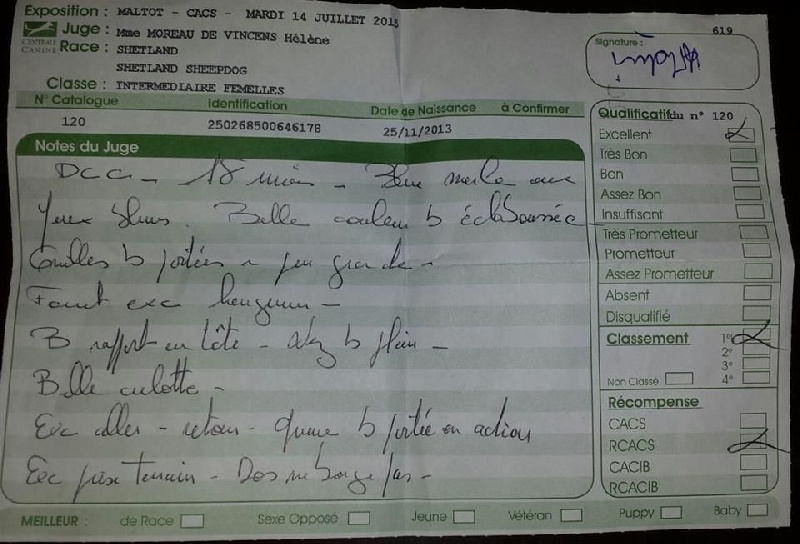 Exposition : MALTOT - CACS - MARDI 14 JUILLET 2015
619
Juge : Mme MOREAU DE VINCENS Hélène
CENTRALE CANINE
Race : SHETLAND
SHETLAND SHEEPDOG
Classe : INTERMEDIAIRE FEMELLES
Signature :
N° Catalogue Identification Date de Naissance à Confirmer
120 250268500646178 25/11/2013
Notes du Juge
18 mois - Bleu merle aux
yeux bleus. Belle couleur b éclaboussée
Oreilles b portées un peu grande -
Fouet exc longueur -
B rapport en tête - b plein -
Belle culotte -
Exc aller - retour - queue b portée en action
Exc prise terrain - Dos ne bouge pas -
Qualificatif du n° 120
Excellent
Très Bon
Bon
Assez Bon
Insuffisant
Très Prometteur
Prometteur
Assez Prometteur
Absent
Disqualifié
Classement 1er
2e
3e
Non Classé 4e
Récompense
CACS
RCACS
CACIB
RCACIB
MEILLEUR : de Race Sexe Opposé Jeune Vétéran Puppy Baby